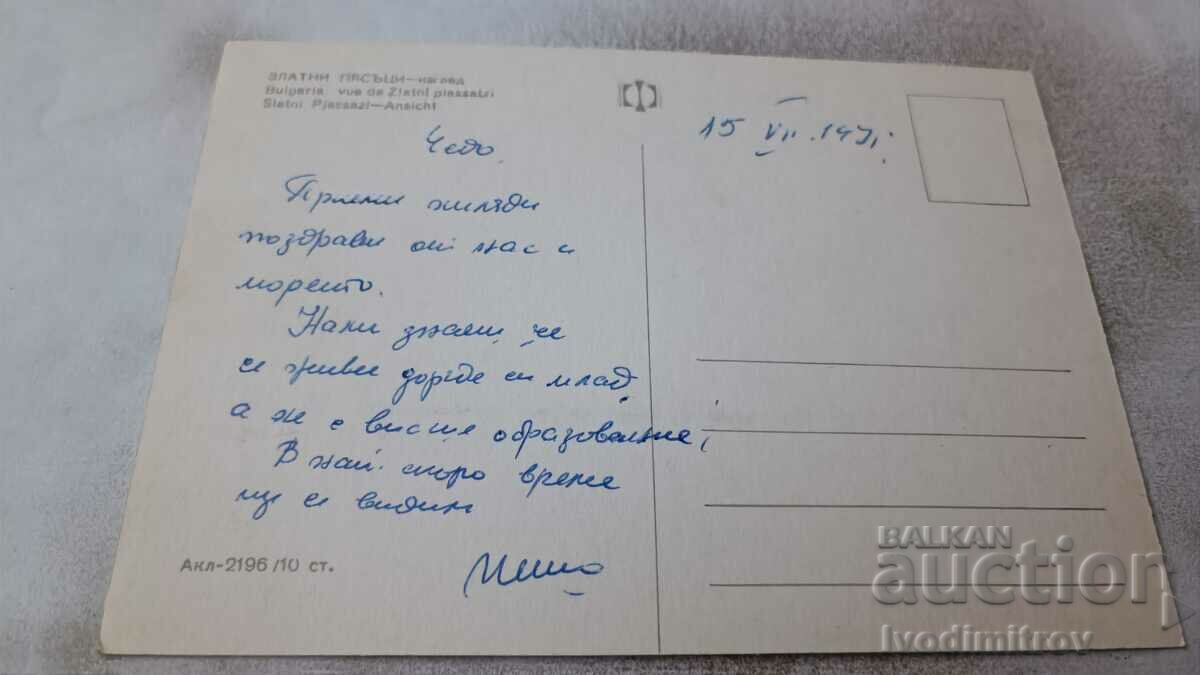 ЗЛАТНИ ПЯСЪЦИ—изглед
Bulgaria vue de Zlatni piassatzi
Slatni Pjassazi—Ansicht
15 VII. 1971
Чедо,
Приеми хиляди
поздрави от нас и
морето.
Нали знаеш, че
се живее докато си млад,
а не с висше образование,
В най-скоро време
ще се видим
Акл-2196/10 ст.
BALKAN
auction
Ivodimitrov